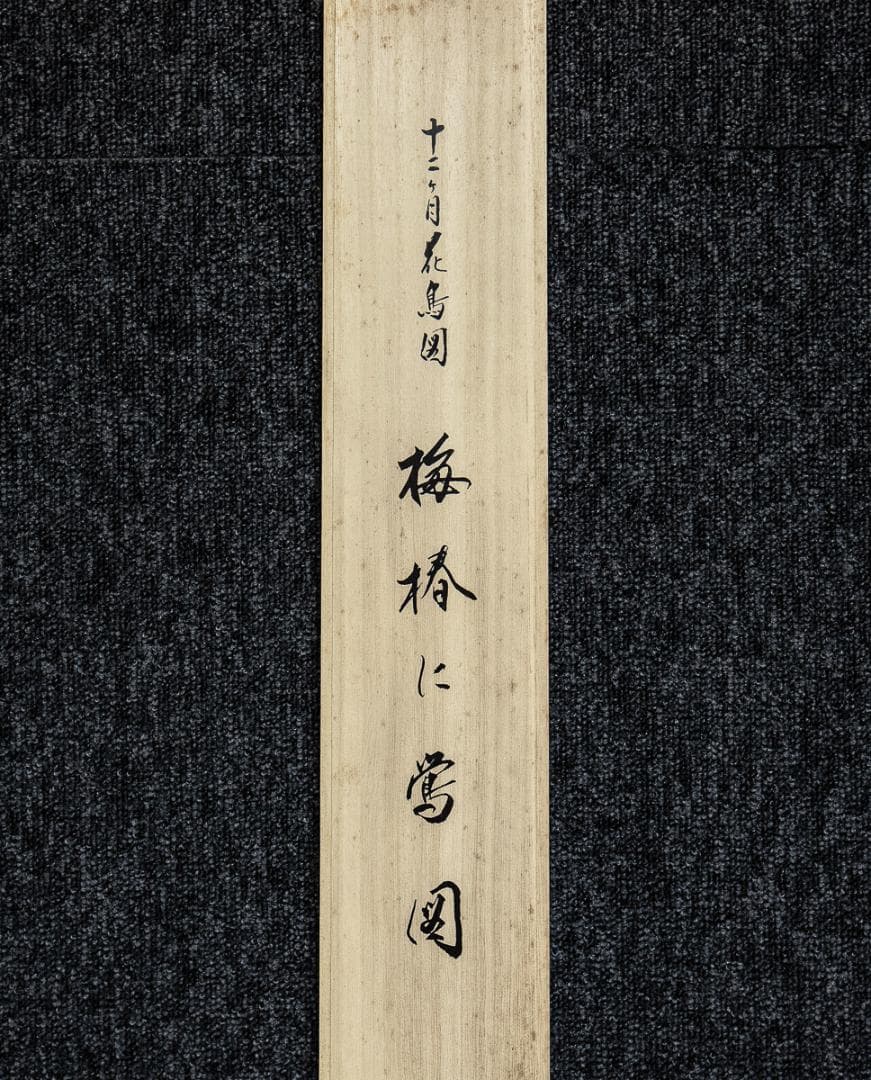 十二ヶ月花鳥図 梅椿に鶯図